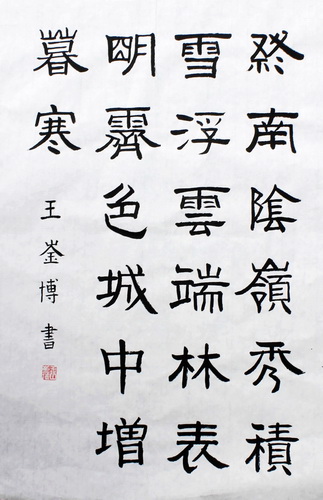 終南陰嶺秀積
雪浮雲端林表
明霽色城中增
暮寒
王崟博書